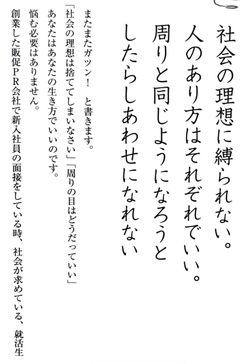 社会の理想に縛られない。
人のあり方はそれぞれでいい。
周りと同じようになろうと
したらしあわせになれない
またまたガツン！　と書きます。
「社会の理想は捨ててしまいなさい」「周りの目はどうだっていい」
あなたはあなたの生き方でいいのです。
悩む必要はありません。
創業した販促ＰＲ会社で新入社員の面接をしている時、社会が求めている、就活生